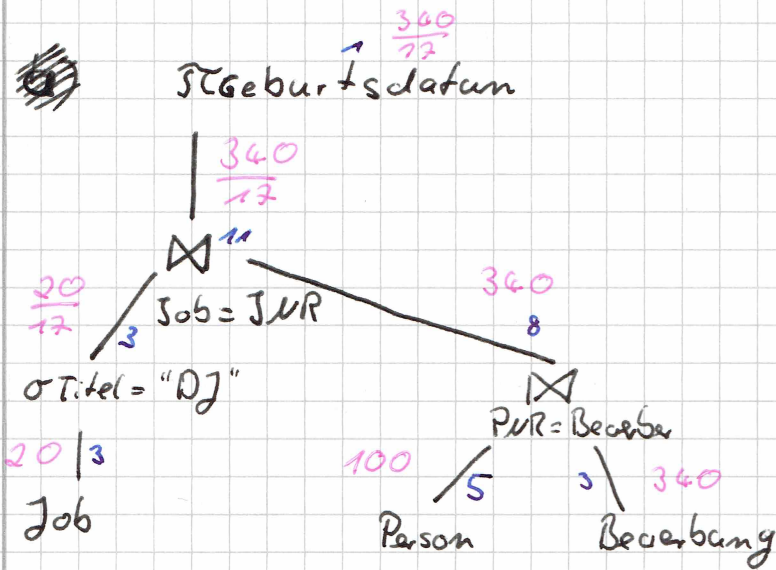 340
1 17
πGeburtsdatum
340
17
⋈ 11
20
17
340
Job = JNR
3
8
σTitel = "DJ"
⋈
PNR = Bewerber
20 3
100
5
3
340
Job
Person
Bewerbung